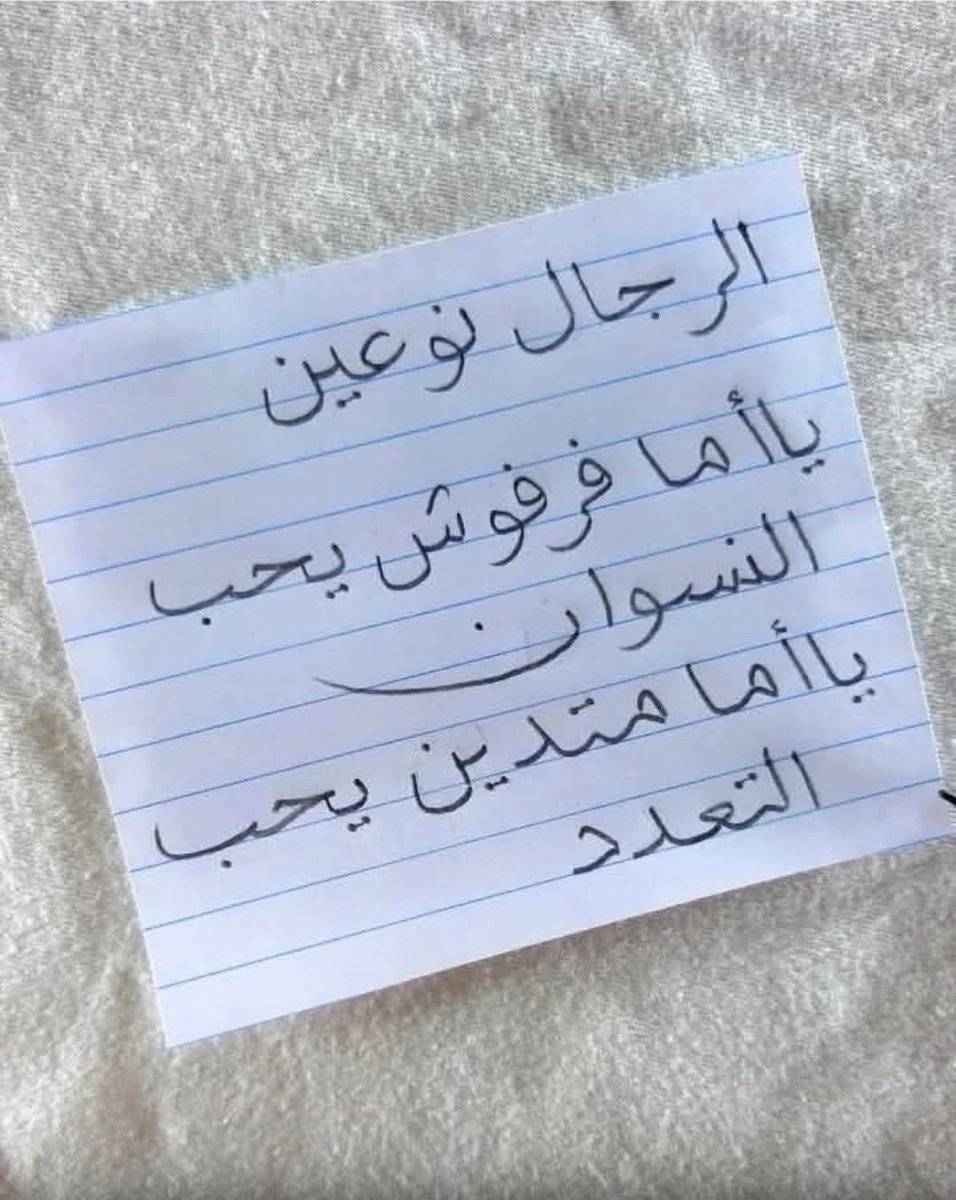 الرجال نوعين
ياأما فرفوش يحب
النسوان
ياأما متدين يحب
التعدد